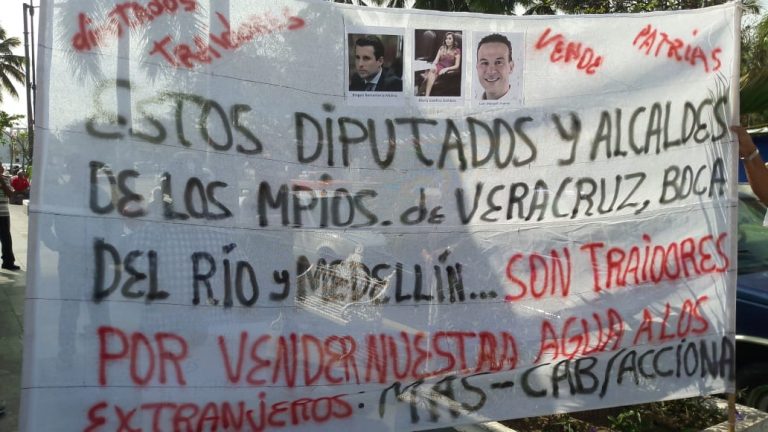 DIPUTADOS
TRAIDORES
VENDE
PATRIAS
ESTOS DIPUTADOS Y ALCALDES
DE LOS MPÍOS. de VERACRUZ, BOCA
DEL RÍO y MEDELLÍN... SON TRAIDORES
POR VENDER NUESTRA AGUA A LOS
EXTRANJEROS: MAS-CAB/ACCIONA